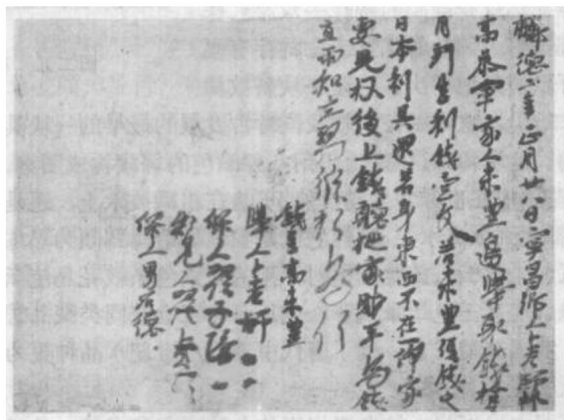 麟德二年正月廿八日寧昌鄉人卜老師於
高參軍家人未豊邊舉取錢拾
月別生利錢壹文若未豊須錢之
日本利具還若身東西不在一仰家
妻兒收後上錢聽抽家財平為錢
直兩和立契獲指為信
錢主高未豊
舉人卜老師
保人翟子隆
知見人翟貞信
保人男石德